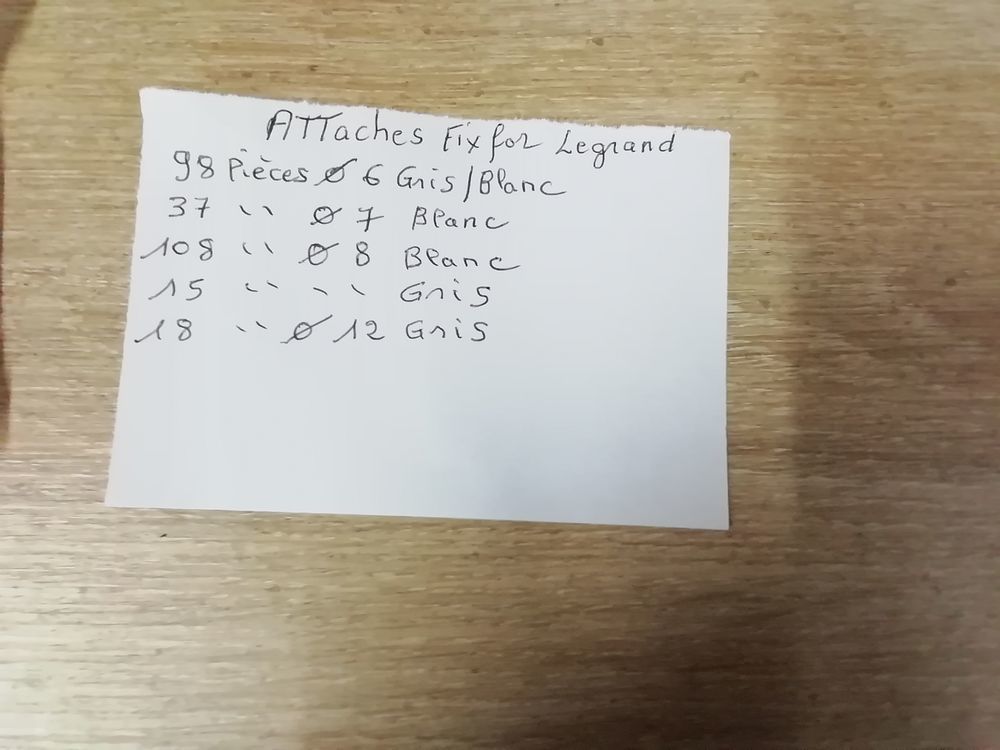 ATTaches Fixfor Legrand
98 Pièces ø 6 Gris/Blanc
37 " ø 7 Blanc
108 " ø 8 Blanc
15 " " Gris
18 " ø 12 Gris